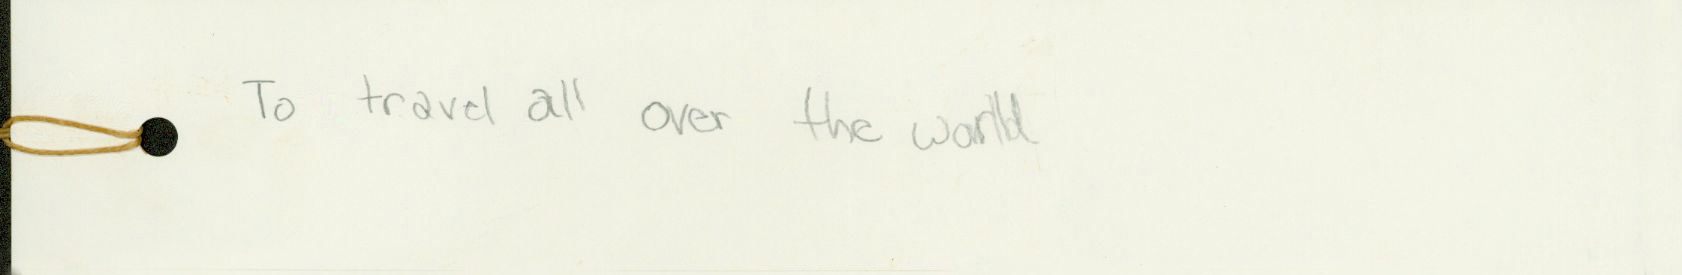 To travel all over the world